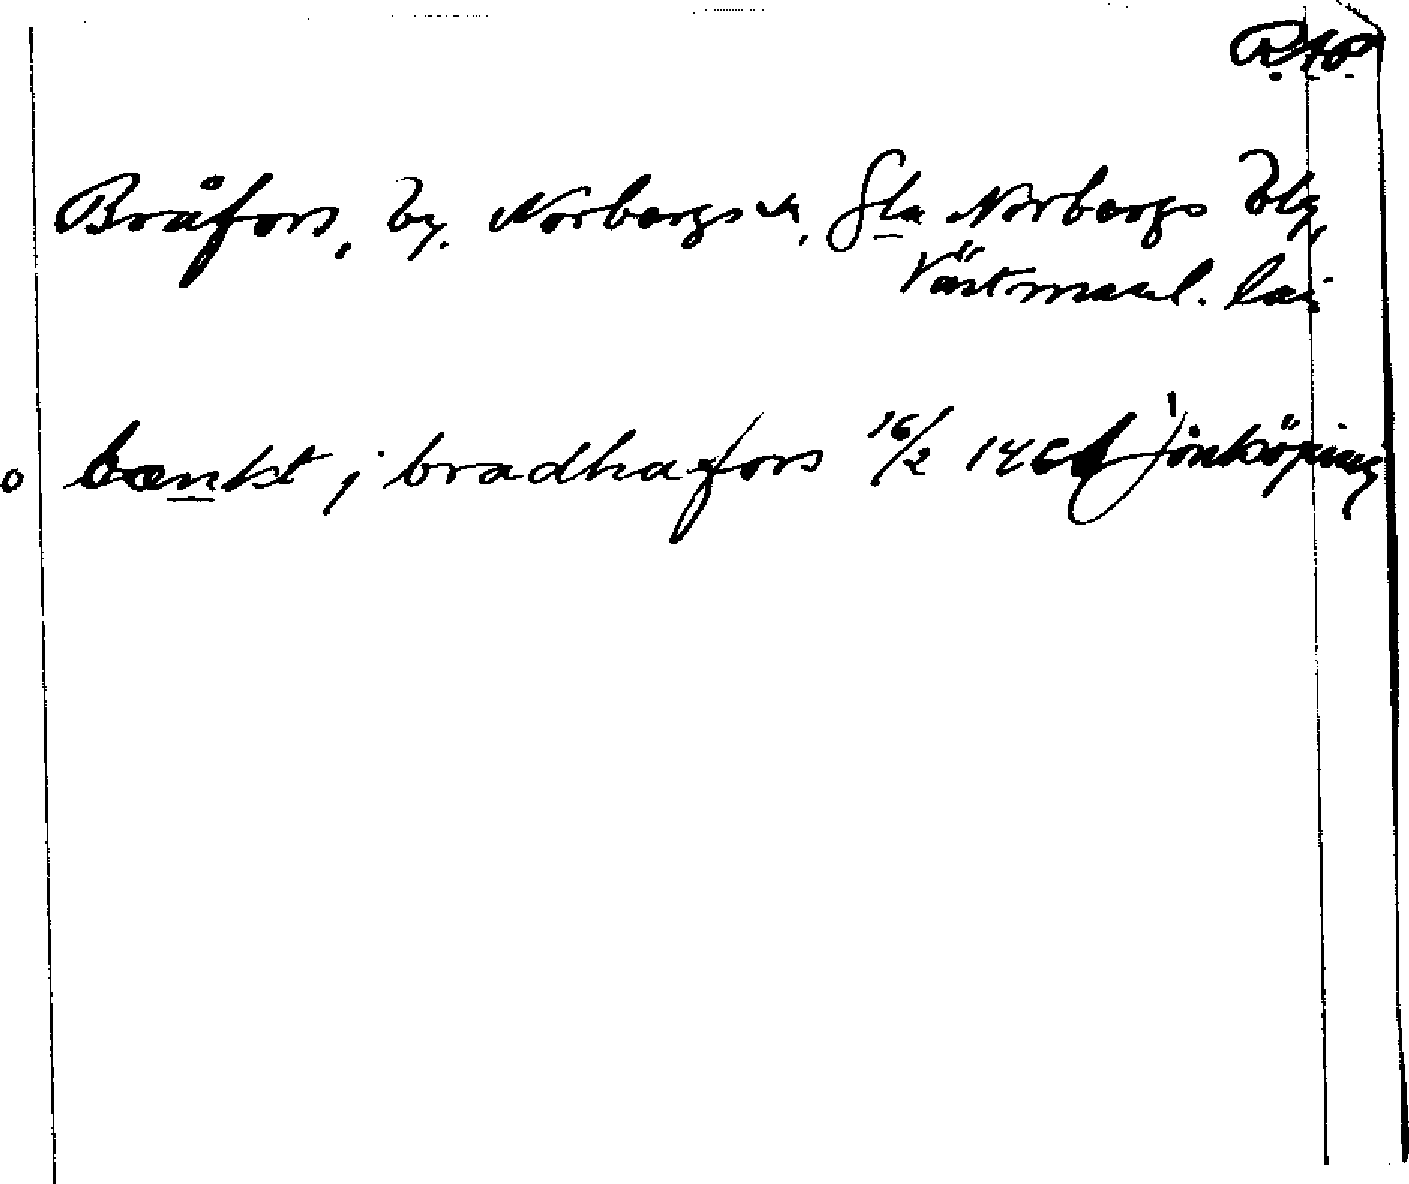 R.A.P.
Bråfors, by, Norbergs sn, Gla Norbergs blg,
Västmanl. län
bænkt j bradhafors 16/2 Jönköping